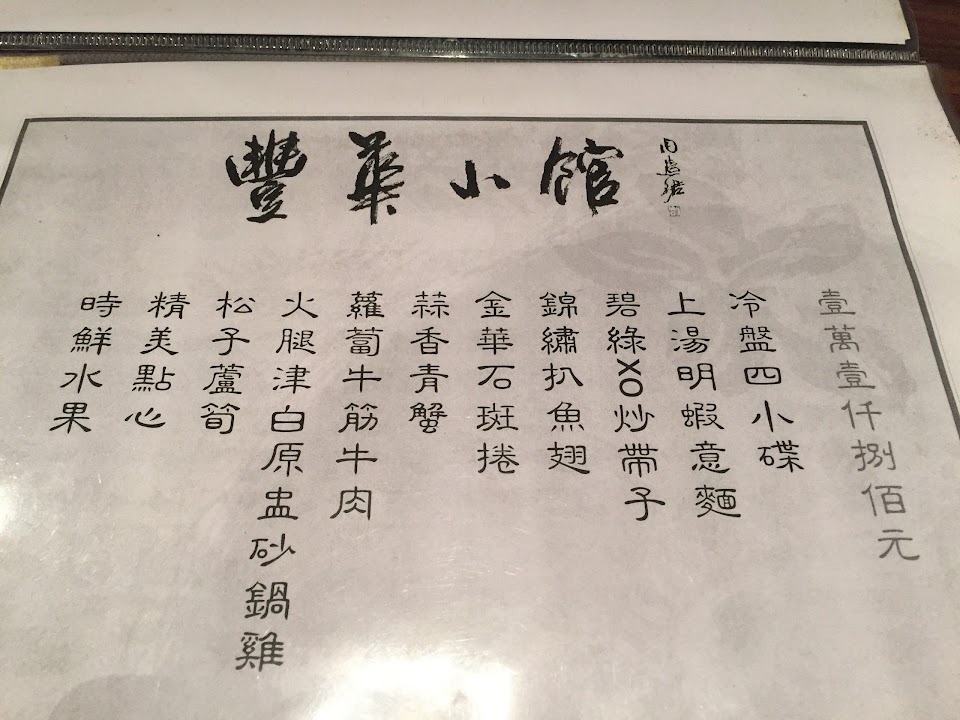 豐華小館
壹萬壹仟捌佰元
冷盤四小碟
上湯明蝦意麵
碧綠XO炒帶子
錦繡扒魚翅
金華石斑捲
蒜香青蟹
蘿蔔牛筋牛肉
火腿津白原盅砂鍋雞
松子蘆筍
精美點心
時鮮水果